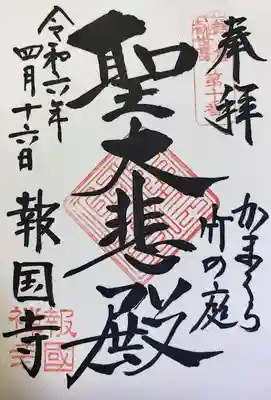 奉拝
かまくら
竹の庭
聖大悲殿
令和六年
四月十六日
報国寺
報國
禅寺